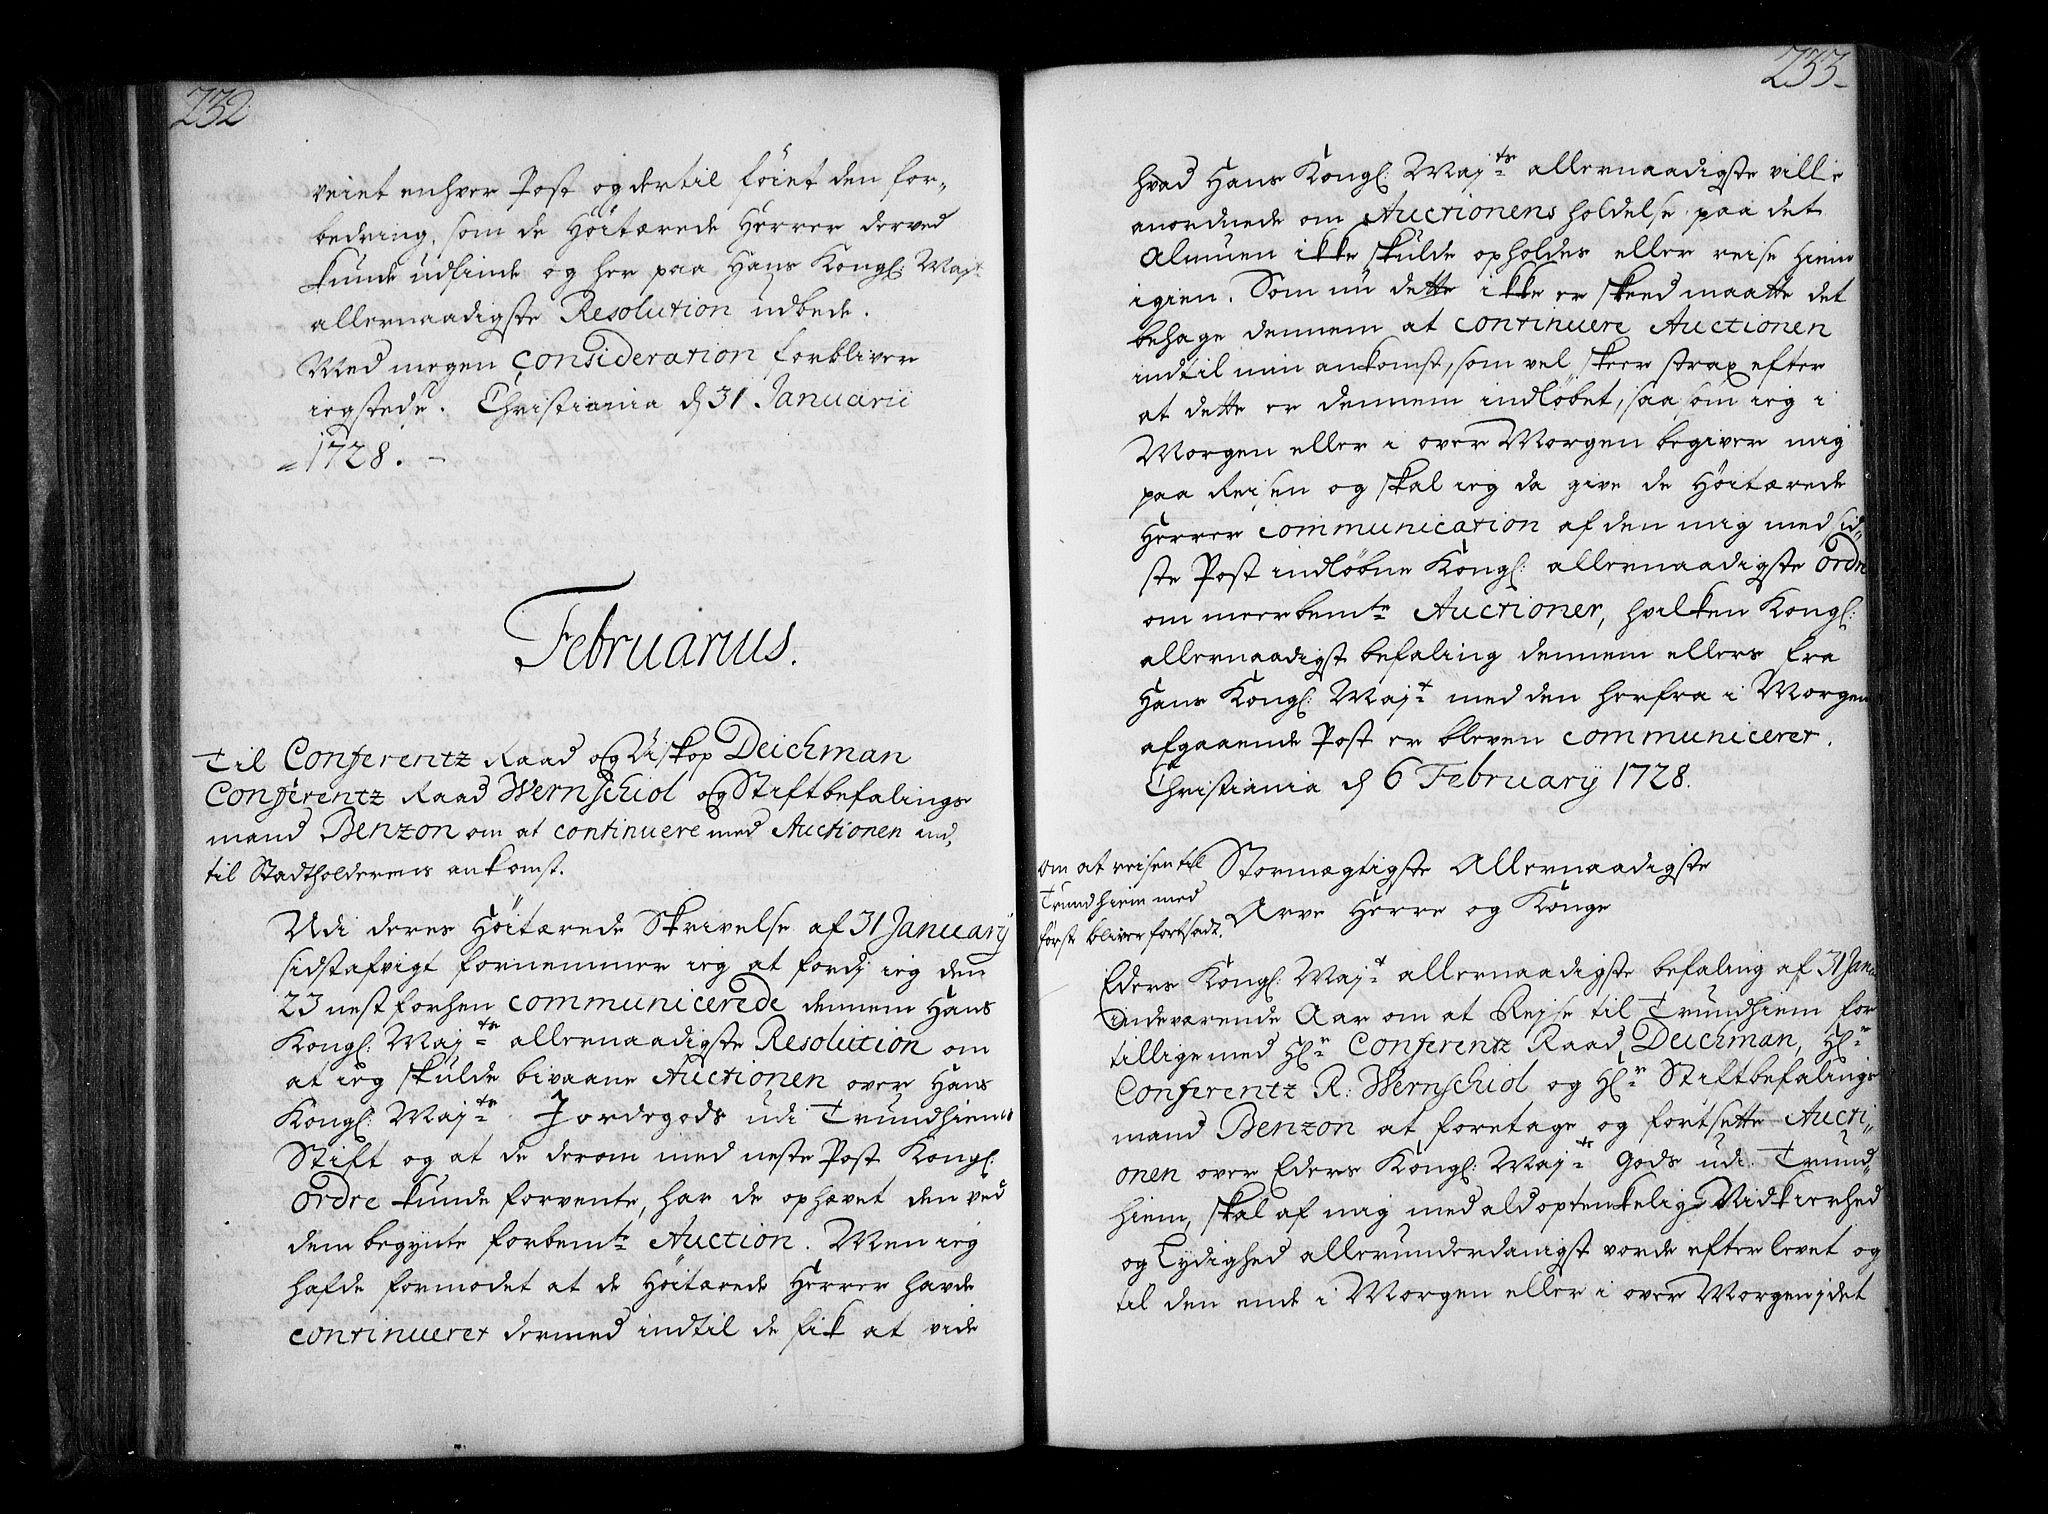 232
veiet enhver Post og dertil föiet den for-
bedring, som de Höitærede Herrer derved
kunde udfinde og her paa Hans Kongl: Mayt
allernaadigste Resolution udbede.
Med megen consideration forbliver
iegstede. Christiania d 31 Januarii
1728.
Februarius.
Til Conferentz Raad og Biskop Deichman
Conferentz Raad Wernschiol og Stiftbefalings
mand Benzon om at continuere med Auctionen ind,
til Stadtholderens ankomst.
Udi deres Höitærede Skrivelse af 31 January
sidstafvigt fornemmer ieg at fordi ieg den
23 nest forhen communicerede dennem Hans
Kongl: Maj:ts allernaadigste Resolution om
at ieg skulde bivaane Auctionen over Hans
Kongl: Maj:ts Jordegods udi Trundhiems
Stift og at de derom med neste Post Kongl:
ordre kunde forvente, har de ophævet den ved
dem begynte forbemte Auction. Men ieg
hafde formodet at de Höitærede Herrer havde
continueret dermed indtil de fik at vide
233
hvad Hans Kongl: Maj:ts allernaadigste ville
anordnede om Auctionens holdelse paa det
Almuen ikke skulde opholdes eller reise hiem
igien. Som nu dette ikke er skeed maatte det
behage dennem at continuere Auctionen
indtil min ankomst, som vel skeer strax efter
at dette er dennem indlöbet, saa som ieg i
Morgen eller i over Morgen begiver mig
paa Reisen og skal ieg da give de Höitærede
Herrer communication af den mig med sid-
ste Post indlöbne Kongl: allernaadigste ordre
om meerbemte Auctioner, hvilken Kongl:
allernaadigst befaling dennem ellers fra
Hans Kongl: Maj:t med den herfra i Morgen
afgaaende Post er bleven communiceret.
Christiania d 6 February 1728.
om at reisen til
Trundhiem med
först bliver fortsadt.
Stormægtigste Allernaadigste
Arve Herre og Konge
Eders Kongl: Maj:t allernaadigste befaling af 31 Janu
indeværende Aar om at Rejse til Trundhiem for
tillige med Hr Conferentz Raad Deichman, Hr
Conferentz R: Wernschiol og Hr Stiftbefalings
mand Benzon at foretage og fortsette Aucti-
onen over Eders Kongl: Maj:ts Gods udi Trund,
hiem, skal af mig med ald optenkelig Nidkierhed
og Lydighed allerunderdanigst vorde efterlevet og
til den ende i Morgen eller i over Morgen idet